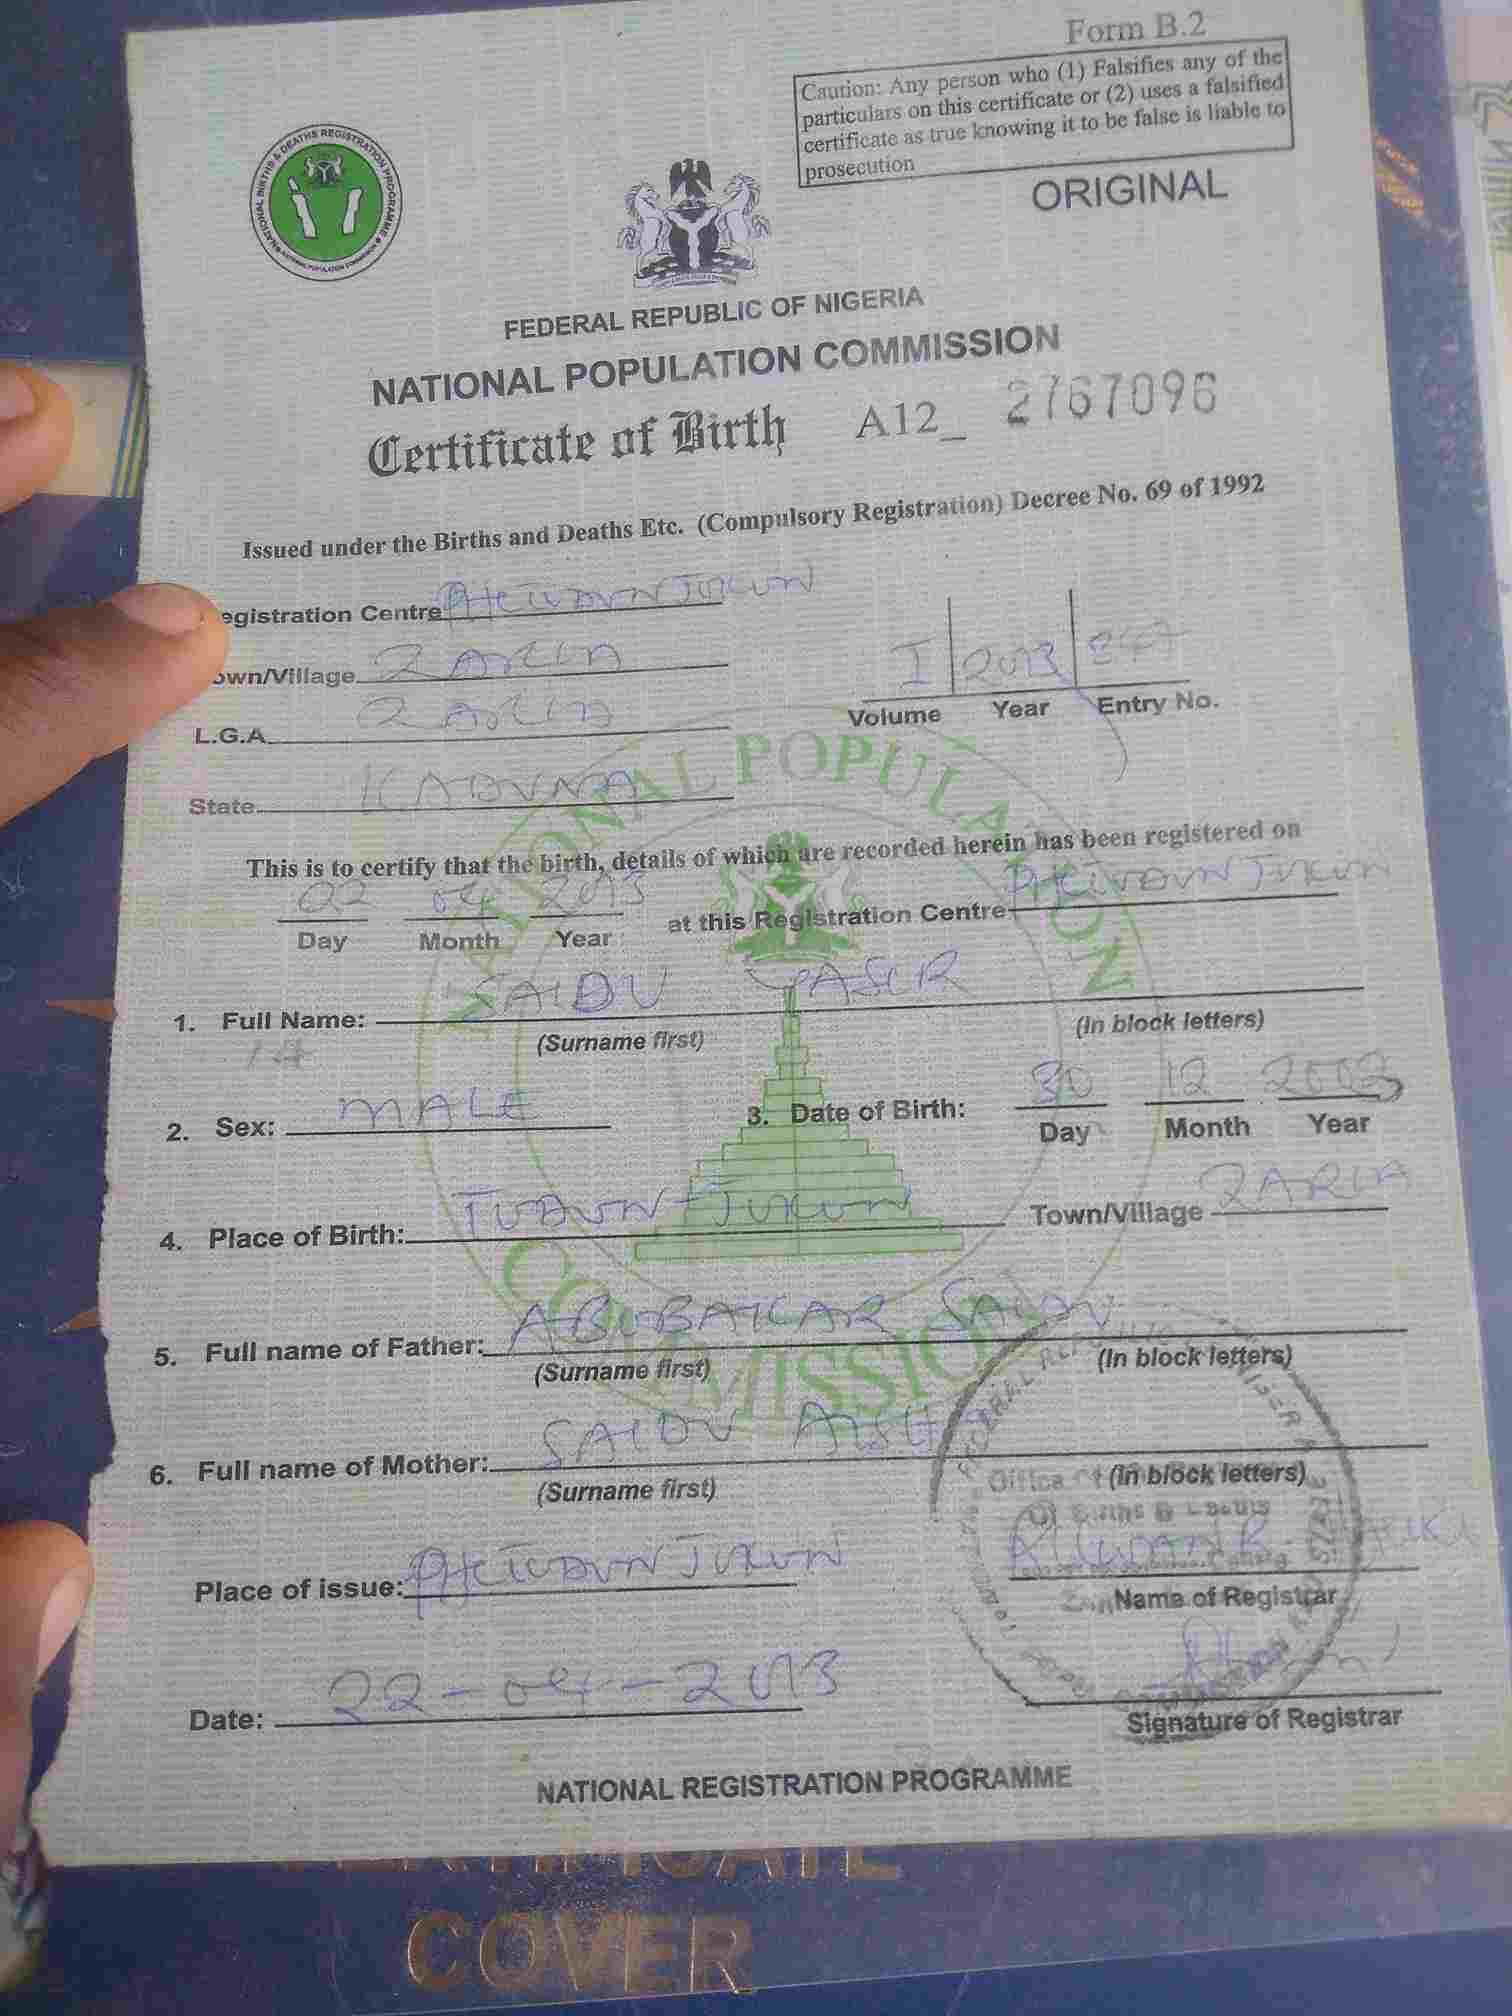 Form B.2
Caution: Any person who (1) Falsifies any of the
particulars on this certificate or (2) uses a falsified
certificate as true knowing it to be false is liable to
prosecution
ORIGINAL
NATIONAL BIRTHS & DEATHS REGISTRATION PROGRAMME
NATIONAL POPULATION COMMISSION
FEDERAL REPUBLIC OF NIGERIA
NATIONAL POPULATION COMMISSION
Certificate of Birth A12_ 2767096
Issued under the Births and Deaths Etc. (Compulsory Registration) Decree No. 69 of 1992
egistration Centre PHC TUDUN JUKUN
own/Village ZARIA
I 2013
Volume Year Entry No.
L.G.A. ZARIA
State KADUNA
NATIONAL POPULATION COMMISSION
This is to certify that the birth, details of which are recorded herein has been registered on
22 04 2013 at this Registration Centre PHC TUDUN JUKUN
Day Month Year
1. Full Name: SAIDU YASIR
(Surname first) (In block letters)
2. Sex: MALE 3. Date of Birth: 30 12 2003
Day Month Year
4. Place of Birth: TUDUN JUKUN Town/Village ZARIA
5. Full name of Father: ABUBAKAR SAIDU
(Surname first) (In block letters)
6. Full name of Mother: SAIDU AISHA
(Surname first) (In block letters)
Place of issue: PHC TUDUN JUKUN
Name of Registrar
Date: 22-04-2013
Signature of Registrar
NATIONAL REGISTRATION PROGRAMME
CERTIFICATE
COVER